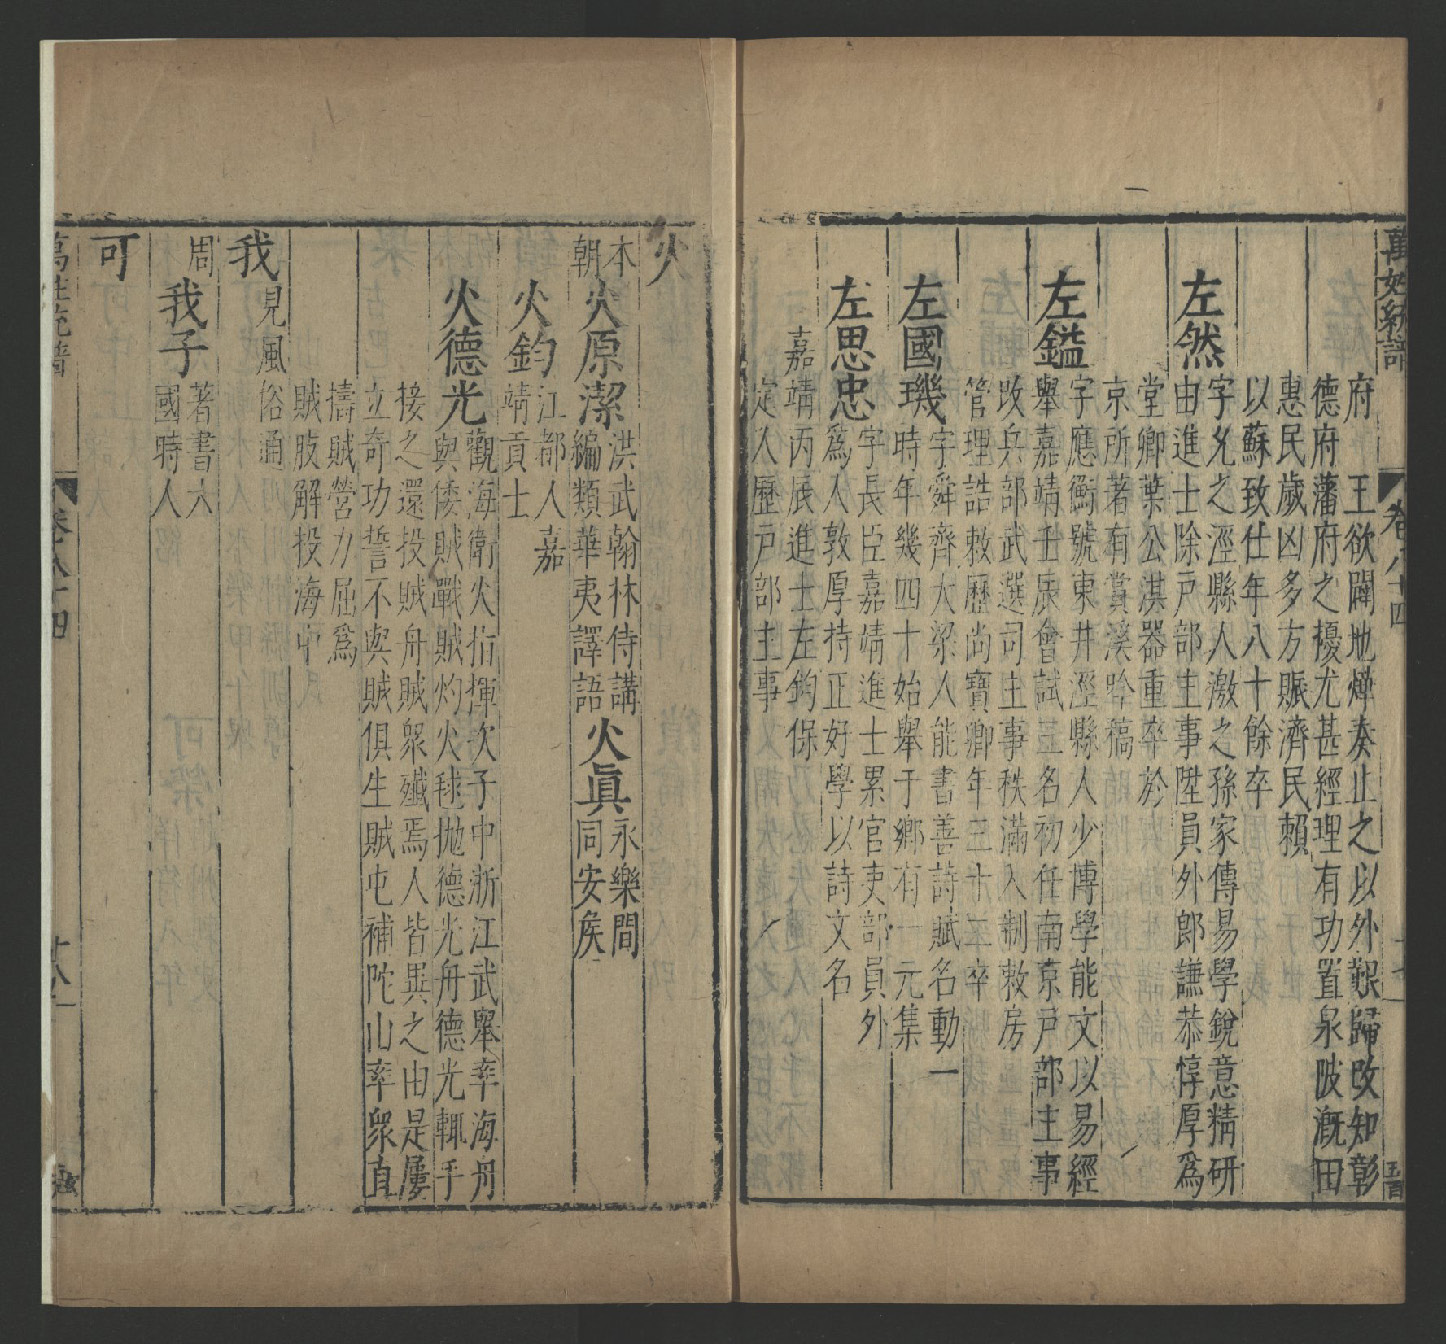 萬姓統譜 卷八十四
府 王欲闢地燁奏止之以外艱歸改知彰
德府藩府之擾尤甚經理有功置泉陂溉田
惠民歲凶多方賑濟民賴
以蘇致仕年八十餘卒
左然 字允之涇縣人激之孫家傳易學銳意精研
由進士除戸部主事陞員外郎謙恭惇厚爲
堂卿葉公淇器重卒於
京所著有賞溪吟稿
左鑑 字應衡號東井涇縣人少博學能文以易經
舉嘉靖壬辰會試五名初任南京戸部主事
改兵部武選司主事秩滿入制敕房
管理誥敕歷尚寶卿年三十三卒
左國璣 字舜齊大梁人能書善詩賦名動一
時年幾四十始舉于鄉有一元集
左思忠 字長臣嘉靖進士累官吏部員外
爲人敦厚持正好學以詩文名
嘉靖丙辰進士左鈞保
定人歷戸部主事
火
本朝 火原潔 洪武翰林侍講
編類華夷譯語 火眞 永樂間
同安侯
火鈞 江都人嘉
靖貢士
火德光 觀海衛火指揮次子中浙江武舉率海丹
與倭賊戰賊灼火毬拋德光舟德光輒手
接之還投賊舟賊衆殲焉人皆異之由是屢
立奇功誓不與賊俱生賊屯補陀山率衆直
擣賊營力屈爲
賊肢解投海中
我 見風
俗通
周 我子 著書六
國時人
可
萬姓統譜 卷八十四 十八